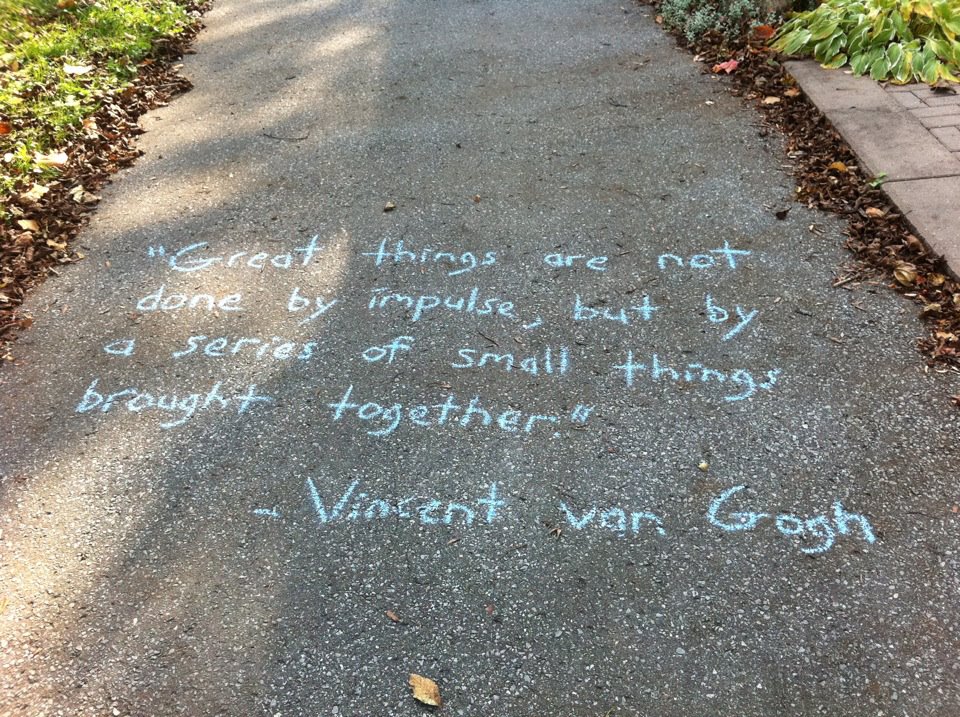 "Great things are not
done by impulse, but by
a series of small things
brought together."
- Vincent van Gogh